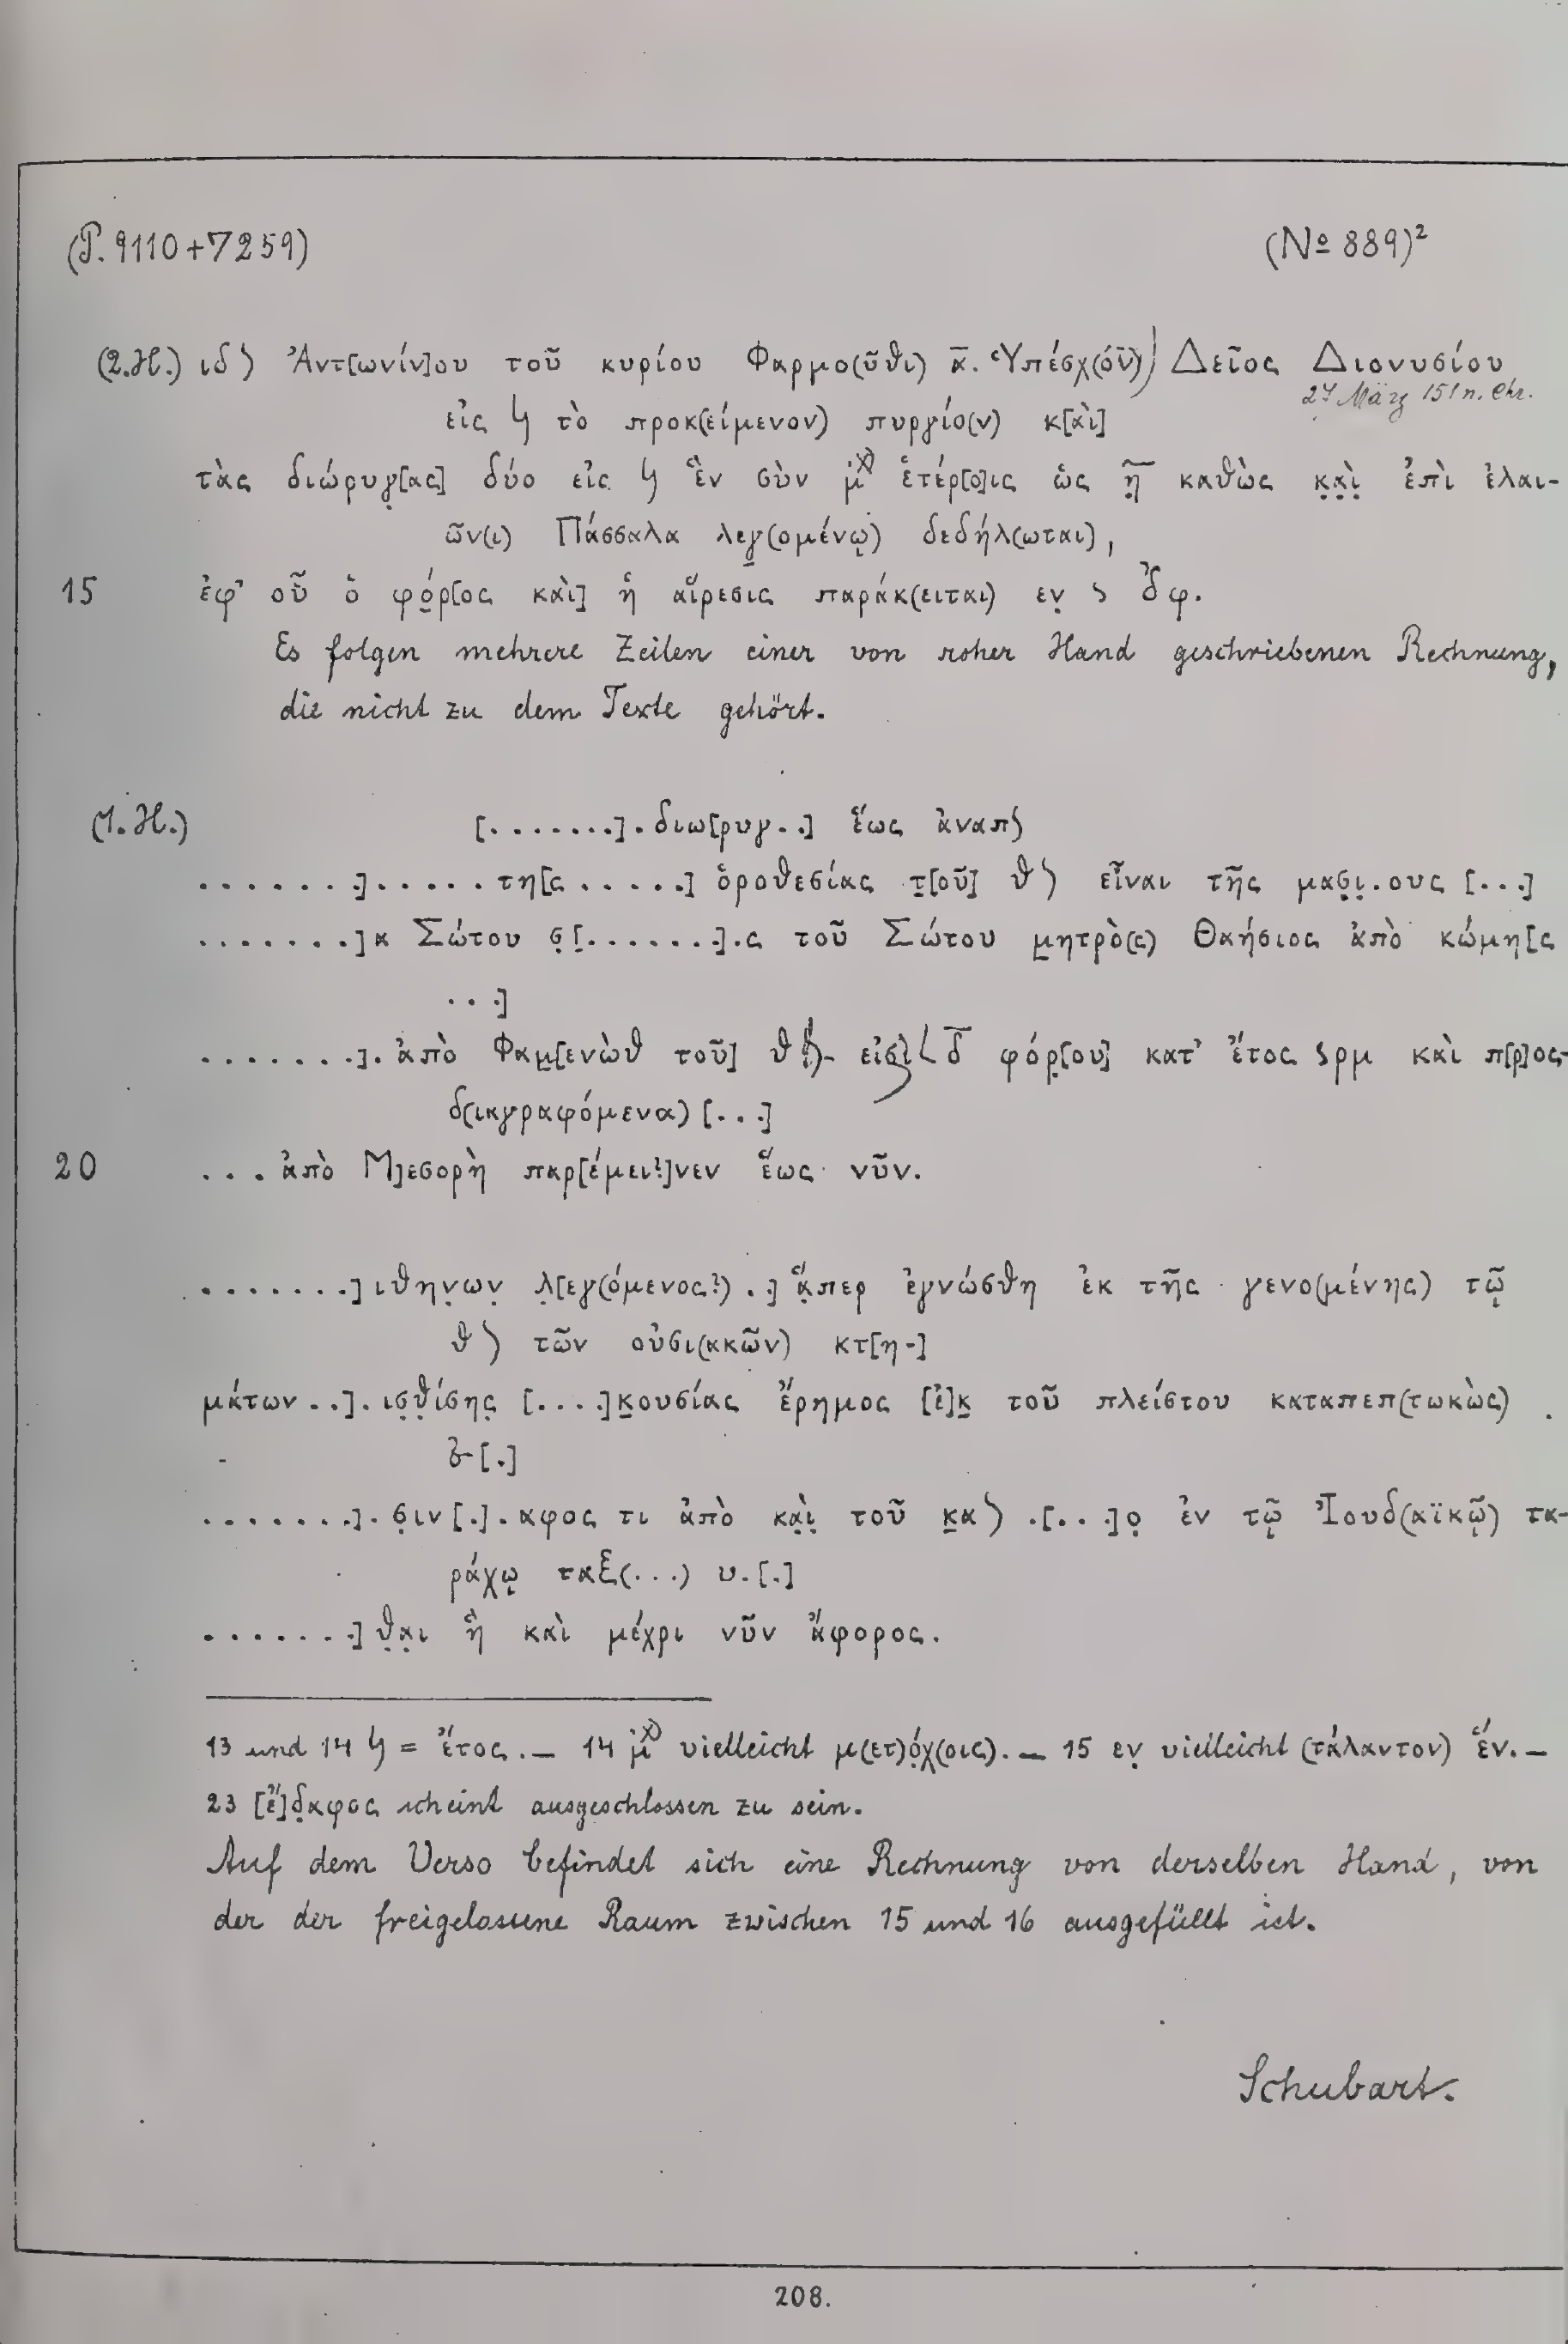 (P. 9110+7259) (№ 889)²
(2.H.) ιδ) Ἀντ[ωνίν]ου τοῦ κυρίου Φαρμο(ῦθι) κ̄. Ὑπέσχ(ό̄ν̄)) Δεῖος Διονυσίου
27 März 151 n. Chr.
εἰς ϟ τὸ προκ(είμενον) πυργίο(ν) κ[αὶ]
τὰς διώρυγ̣[ας] δύο εἰς ϟ ἓν σὺν μ̣̇χ) ἑτέρ[ο]ις ὡς η̣̄ καθὼς κ̣α̣ὶ̣ ἐπὶ ἐλαι-
ῶν(ι) Πάσσαλα λεγ̣(ομένῳ) δεδήλ(ωται),
15 ἐφ' οὗ ὁ φό̣ρ[ος καὶ] ἡ αἵρεσις παράκ(ειται) εν̣ ϛ Ἀφ.
Es folgen mehrere Zeilen einer von roher Hand geschriebenen Rechnung,
die nicht zu dem Texte gehört.
(1.H.) [.......]. διω[ρυγ..] ἕως ἀναπ)
.......]..... τη[ς .....] ὁροθεσίας τ̣[οῦ] θ) εἶναι τῆς μασ̣ι̣.ους [...]
.......]α Σώτου σ̣[.......].ς τοῦ Σώτου μ̣ητρὸ(ς) Θαήσιος ἀπὸ κώμη[ς
...]
.......]. ἀπὸ Φαμ̣[ενὼθ τοῦ] θ φόρ̣[ου] κατ' ἔτος ϛρμ καὶ π[ρ]οσ-
δ(ιαγραφόμενα) [...]
20 ... ἀπὸ Μ]εσορὴ παρ[έμει?]νεν ἕως νῦν.
.......]ιθην̣ων̣ λ̣[εγ(όμενος?) .] ἅ̣περ ἐγνώσθη ἐκ τῆς γενο(μένης) τῷ
θ) τῶν οὐσι(ακῶν) κτ[η-]
μάτων ..]. ισ̣θ̣ίσης̣ [....]κ̣ουσίας ἔρημος [ἐ]κ̣ τοῦ πλείστου καταπεπ(τωκὼς)
[.]
.......]. σ̣ιν[.].αφος τι ἀπὸ κα̣ὶ̣ τοῦ κ̣α) .[...]ο̣ ἐν τῷ Ἰουδ(αϊκῷ) τα-
ράχῳ ταξ(...) υ.[.]
.......]θ̣α̣ι ἣ καὶ μέχρι νῦν ἄφορος.
13 und 14 ϟ = ἔτος. — 14 μ̣̇χ) vielleicht μ(ετ)ό̣χ(οις). — 15 εν̣ vielleicht (τάλαντον) ἕν. —
23 [ἔ]δ̣αφος scheint ausgeschlossen zu sein.
Auf dem Verso befindet sich eine Rechnung von derselben Hand, von
der der freigelassene Raum zwischen 15 und 16 ausgefüllt ist.
Schubart.
208.